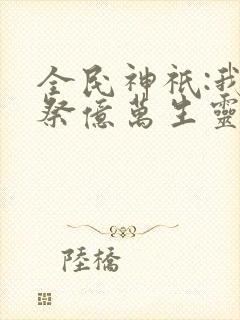 全民神祇:我
祭億萬生靈
陸橋